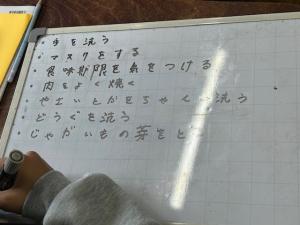 ・手を洗う
・マスクをする
・賞味期限を気をつける
・肉をよく焼く
・やさいとかをちゃんと洗う
・どうぐを洗う
・じゃがいもの芽をと